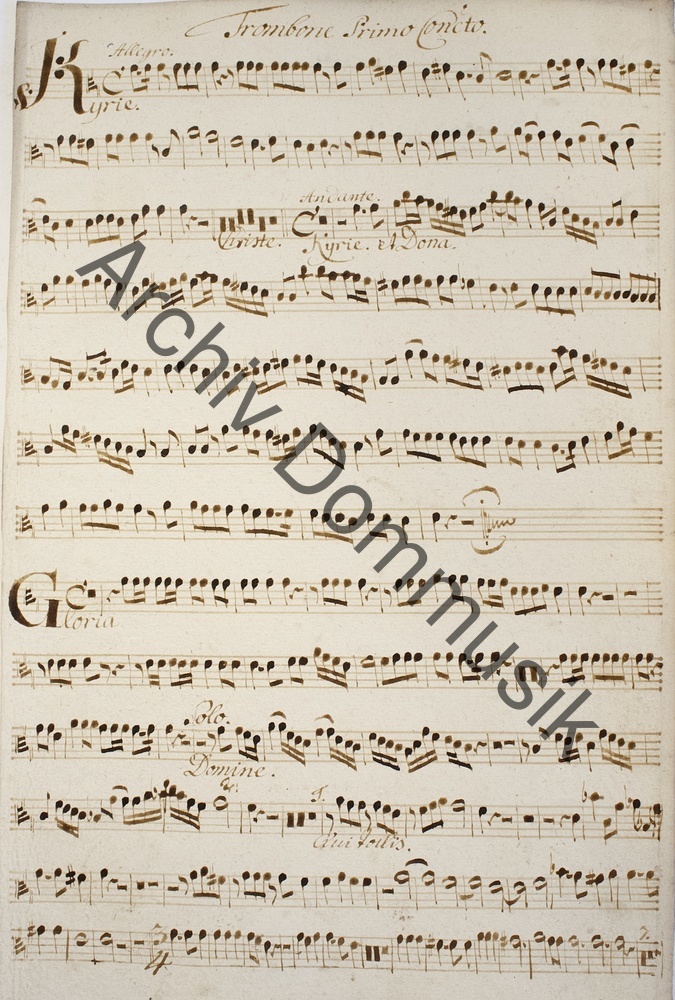 Trombone Primo Conc̃to.
Allegro.
Kyrie.
Andante.
Christe. Kyrie. et Dona.
Gloria
Solo.
Domine.
T.
Qui tollis.
3
4
Archiv Dommusik